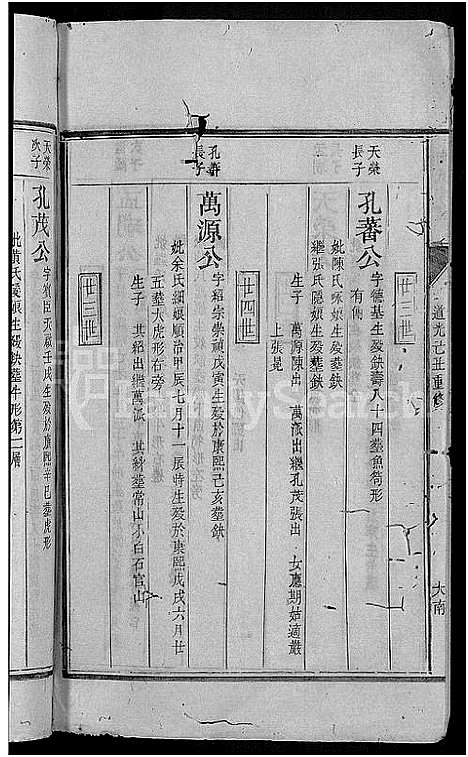 道光己丑重修
大南
廿三世
天榮
長子
孔蕃公
字德基生殁缺壽八十四塟魚筒形
有傳
妣陳氏咏娘生殁塟缺
繼張氏隱娘生殁塟缺
生子 萬源陳出 萬派出繼孔茂張出 女應期姑適嚴
上張晃
廿四世
孔蕃
長子
萬源公
字紹宗崇禎戊寅生殁於康熙己亥塟缺
妣余氏細娘順治甲辰七月十一辰時生殁於康熙戊戌六月廿
五塟大虎形右旁
生子 其紹出繼萬派 其 塟常山小白石官山
廿三世
天榮
次子
孔茂公
字 臣天啟壬戌生殁於康熙辛巳塟虎形
妣黃氏 娘生殁缺塟牛形第二層
FamilySearch